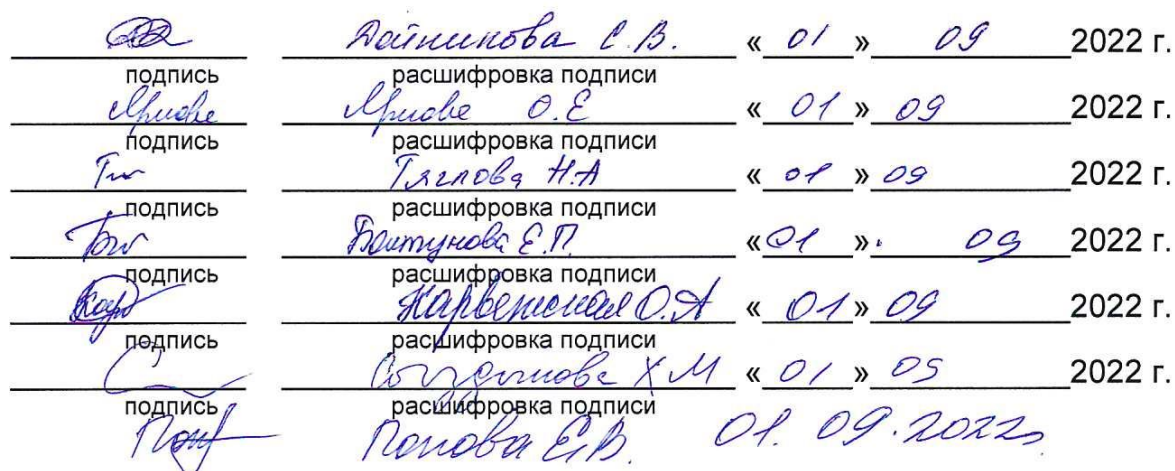 Дойникова С.В. « 01 » 09 2022 г.
подпись расшифровка подписи
О.Е « 01 » 09 2022 г.
подпись расшифровка подписи
Тяглова Н.А « 01 » 09 2022 г.
подпись расшифровка подписи
Болтунова Е.П. « 01 » 09 2022 г.
подпись расшифровка подписи
О.А « 01 » 09 2022 г.
подпись расшифровка подписи
Х М « 01 » 09 2022 г.
подпись расшифровка подписи
Попова Е.В. 01.09.2022